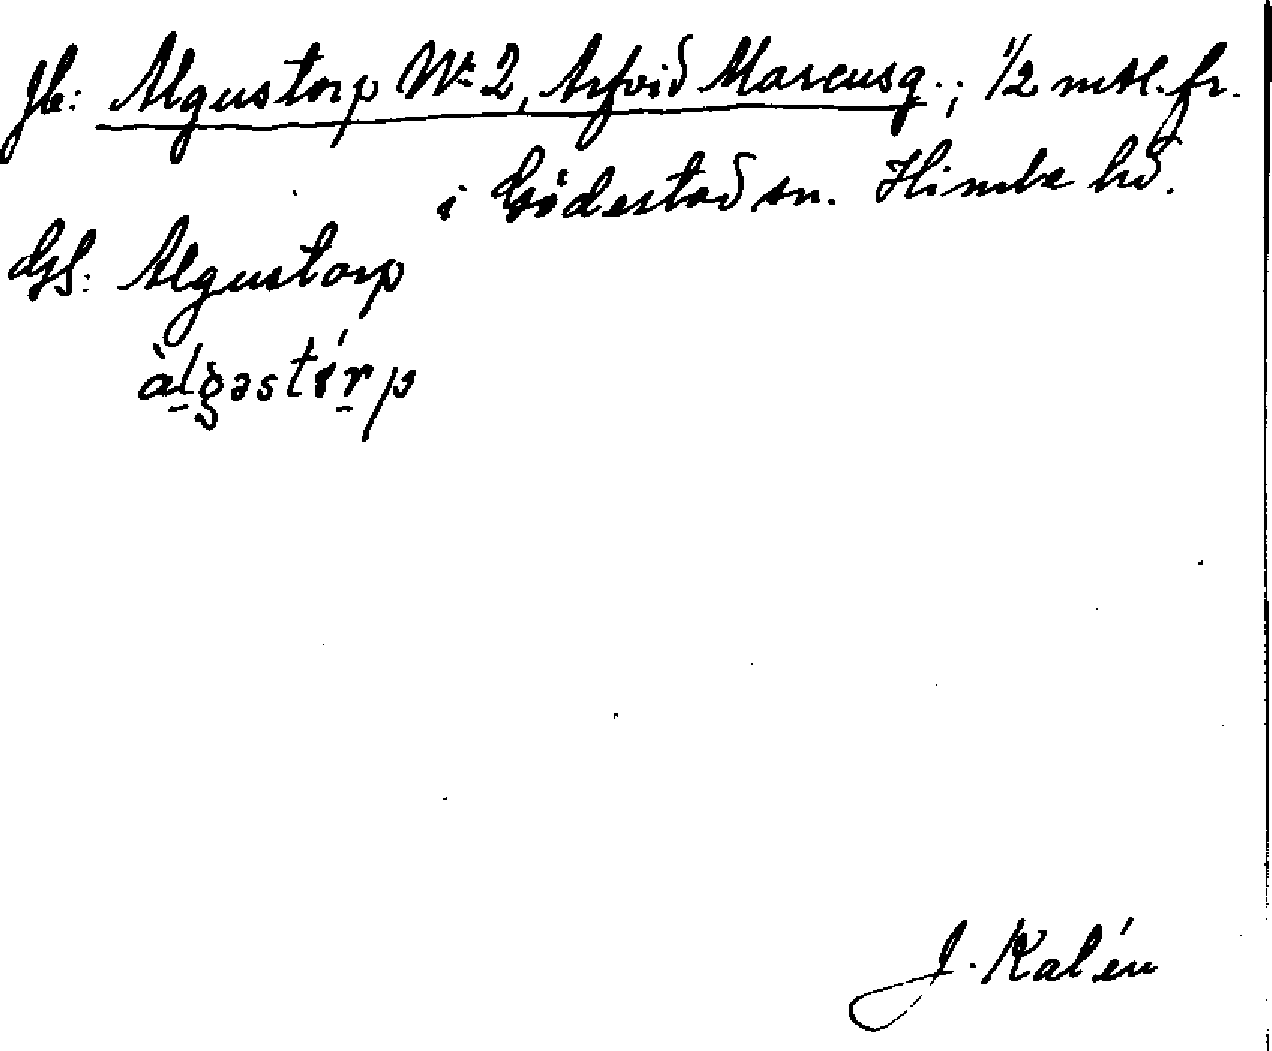 Jb: Algustorp No 2, Arfvid Marcusg.; 1/2 mtl. fr.
i Gödestad sn. Himle hd.
GS: Algustorp
àlgəstórp
J. Kalén